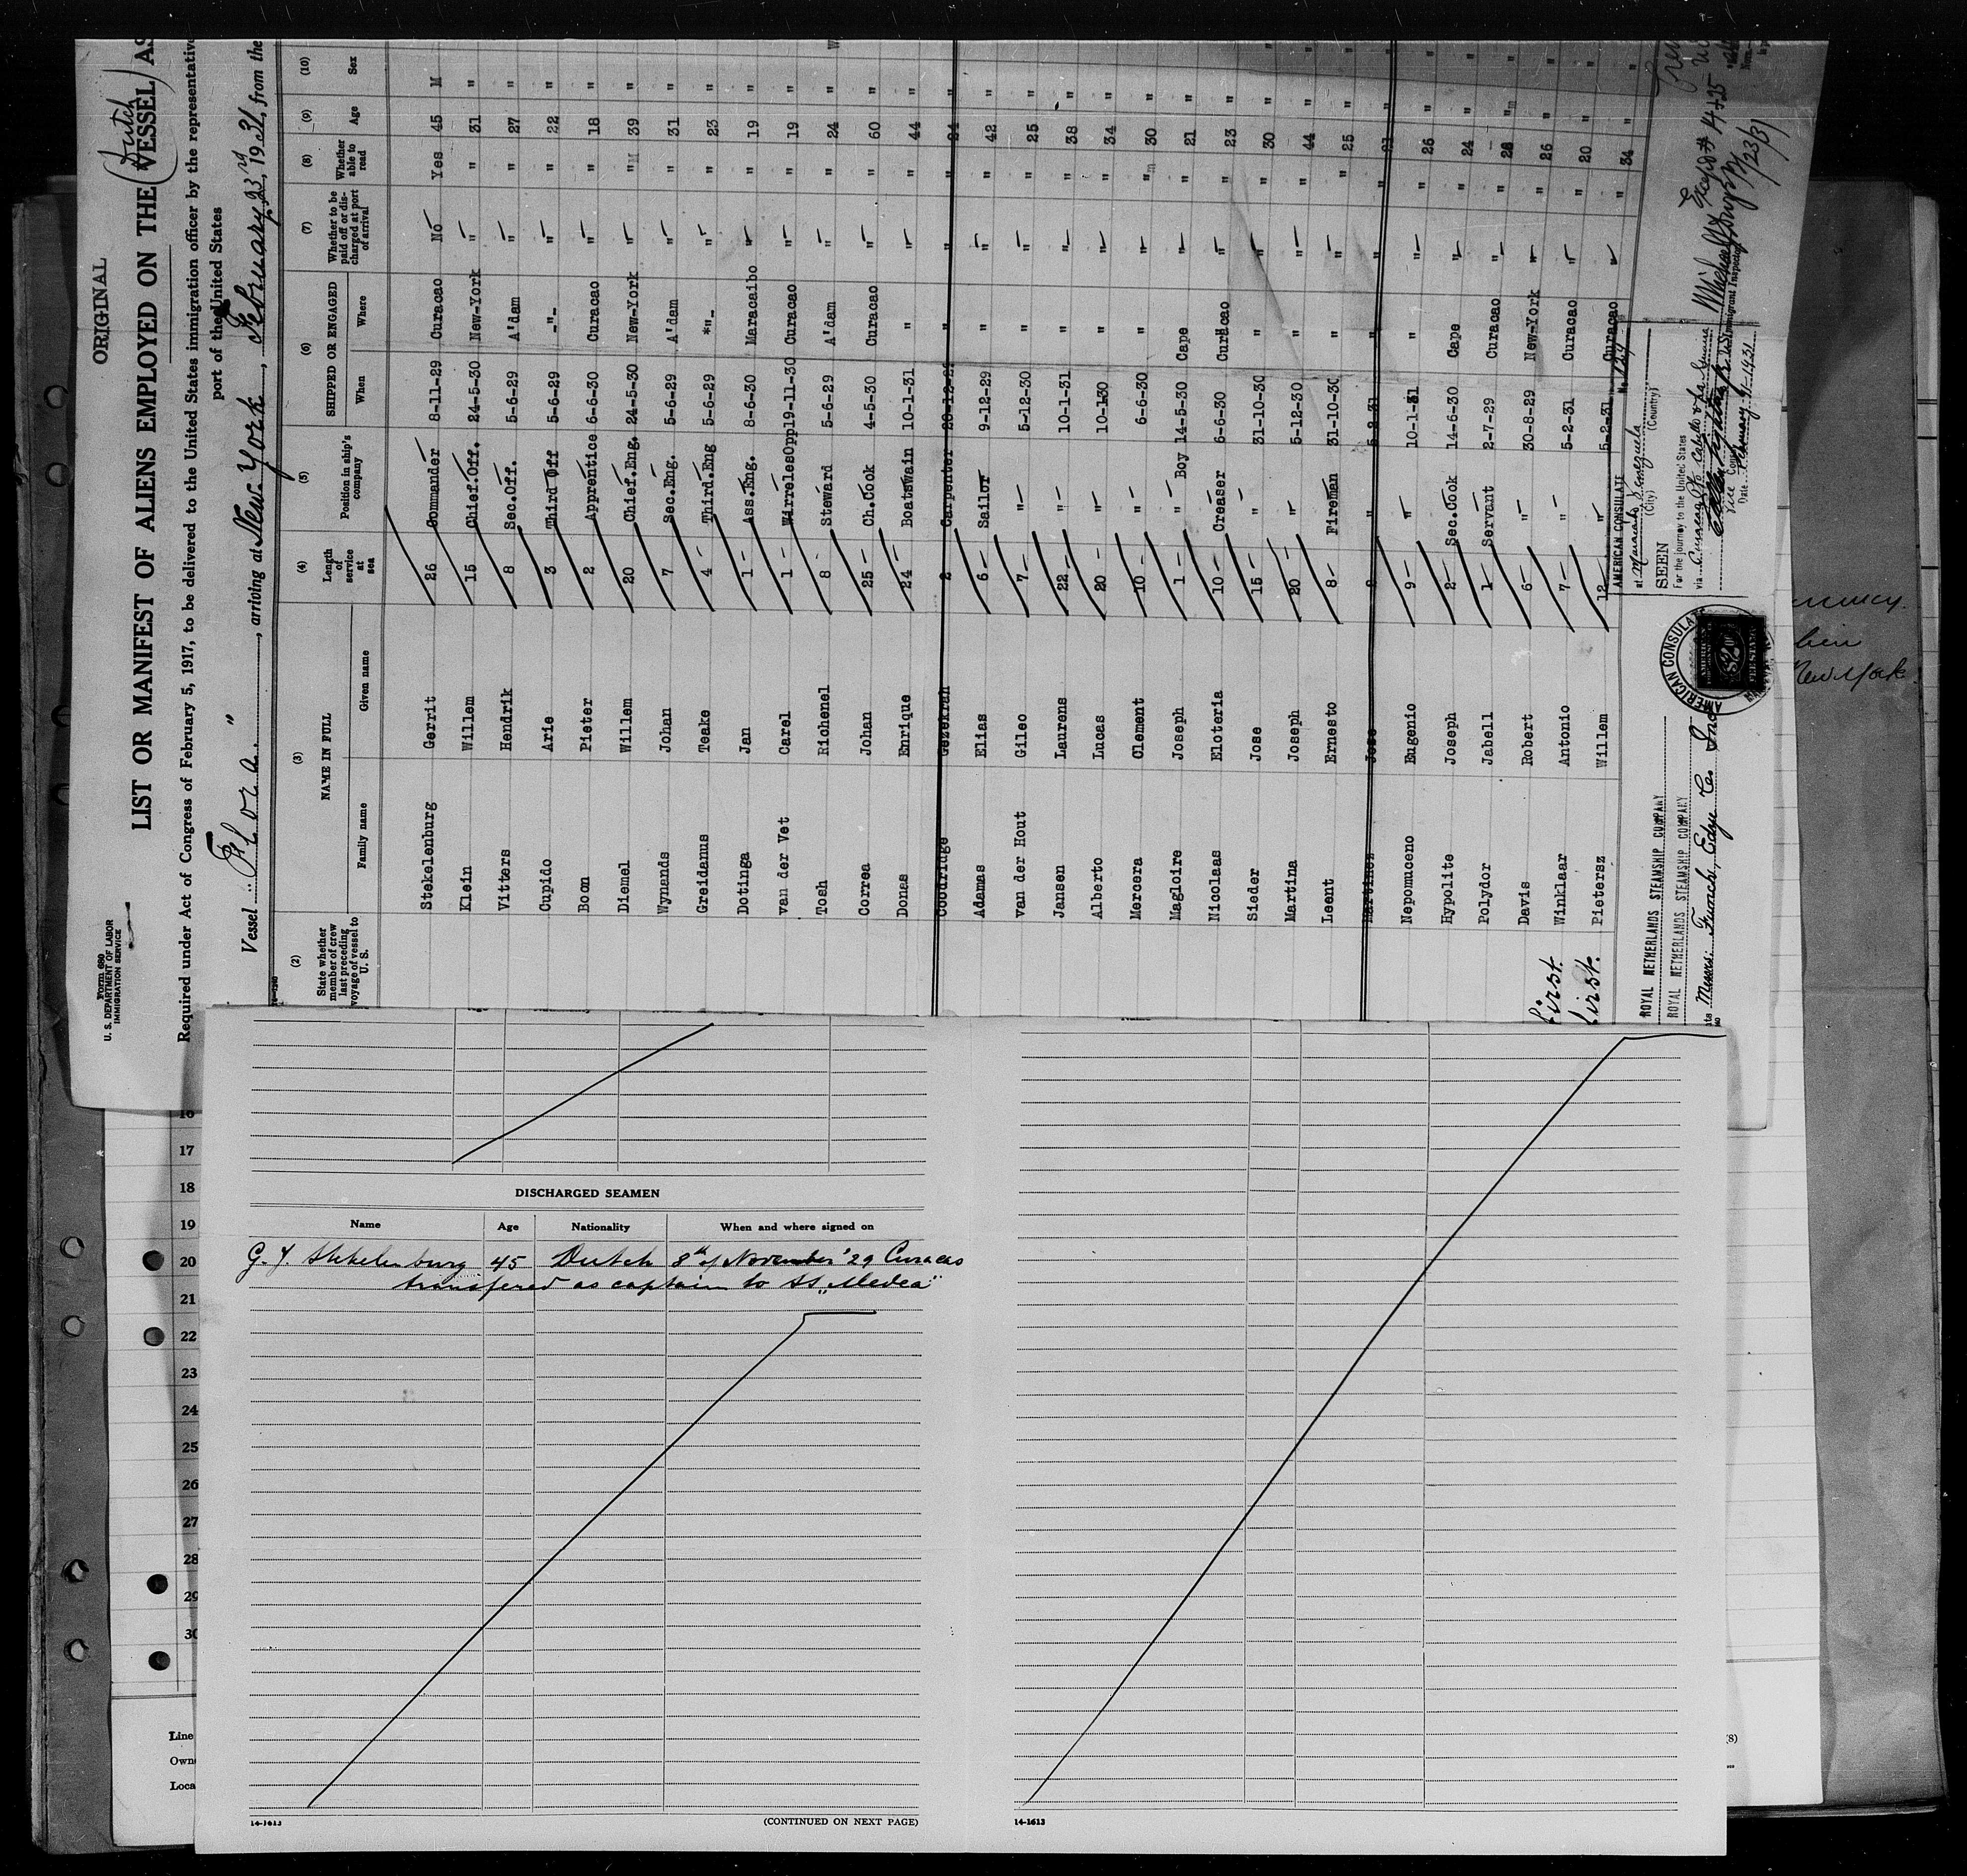 ORIGINAL
(Dutch)
Form 680
U. S. DEPARTMENT OF LABOR
IMMIGRATION SERVICE
LIST OR MANIFEST OF ALIENS EMPLOYED ON THE VESSEL AS
Required under Act of Congress of February 5, 1917, to be delivered to the United States immigration officer by the representative
port of the United States
Vessel "Flora." , arriving at New-York , February 23rd, 1931, from the
(2) (3) (4) (5) (6) (7) (8) (9) (10)
State whether member of crew last preceding voyage of vessel to U. S. NAME IN FULL Family name Given name Length of service at sea Position in ship's company SHIPPED OR ENGAGED When Where Whether to be paid off or discharged at port of arrival Whether able to read Age Sex
Stekelenburg Gerrit 26 Commander 8-11-29 Curacao No Yes 45 M
Klein Willem 15 Chief.Off. 24-5-30 New-York " " 31 "
Vitters Hendrik 8 Sec.Off. 5-6-29 A'dam " " 27 "
Cupido Arie 3 Third Off 5-6-29 -"- " " 22 "
Boon Pieter 2 Apprentice 6-6-30 Curacao " " 18 "
Diemel Willem 20 Chief.Eng. 24-5-30 New-York " " 39 "
Wynands Johan 7 Sec.Eng. 5-6-29 A'dam " " 31 "
Greidanus Teake 4 Third.Eng 5-6-29 *"- " " 23 "
Dotinga Jan 1 Ass.Eng. 8-6-30 Maracaibo " " 19 "
van der Vet Carel 1 WirrelesOpp19-11-30 Curacao " " 19 "
Tosh Richenel 8 Steward 5-6-29 A'dam " " 24 "
Correa Johan 25 Ch.Cook 4-5-30 Curacao " " 60 "
Donas Enrique 24 Boatswain 10-1-31 " " " 44 "
Goodridge Gezekrah 2 Carpenter 20-12-29 " " " 24 "
Adamas Elias 6 Sailor 9-12-29 " " " 42 "
van der Hout Gileo 7 " 5-12-30 " " " 25 "
Jansen Laurens 22 " 10-1-31 " " " 38 "
Alberto Lucas 20 " 10-1-30 " " " 34 "
Mercera Clement 10 " 6-6-30 " " " 30 "
Magloire Joseph 1 " Boy 14-5-30 Cape " " 21 "
Nicolaas Eloteria 10 Greaser 6-6-30 Curacao " " 23 "
Sieder Jose 15 " 31-10-30 " " " 30 "
Martina Joseph 20 " 5-12-30 " " " 44 "
Leent Ernesto 8 Fireman 31-10-30 " " " 25 "
Martines Jose 2 " 5-2-31 " " " 21 "
Nepomuceno Eugenio 9 " 10-1-31 " " " 26 "
Hypolite Joseph 2 Sec.Cook 14-6-30 Cape " " 24 "
Polydor Jabell 1 Servant 2-7-29 Curacao " " 28 "
Davis Robert 6 " 30-8-29 New-York " " 26 "
first. Winklaar Antonio 7 " 5-2-31 Curacao " " 20 "
first. Pietersz Willem 12 " 5-2-31 Curacao " " 34 "
ROYAL NETHERLANDS STEAMSHIP COMPANY
ROYAL NETHERLANDS STEAMSHIP COMPANY
Messrs. Funch, Edye & Co Inc
AMERICAN CONSULATE
No. 124
at Maracaibo Venezuela
(City) (Country)
SEEN
For the journey to the United States
via Curacao, Pto Cabello & La Guaira
Date February 9, 1931
Immigrant Inspector
2/23/31
New York
16
17
18
19
20
21
22
23
24
25
26
27
28
29
30
Line
Own
Loca
DISCHARGED SEAMEN
Name Age Nationality When and where signed on
G. J. Stekelenburg 45 Dutch 8th of November '29 Curacao
transfered as captain to SS "Medea"
14-1613 (CONTINUED ON NEXT PAGE) 14-1613
(8)